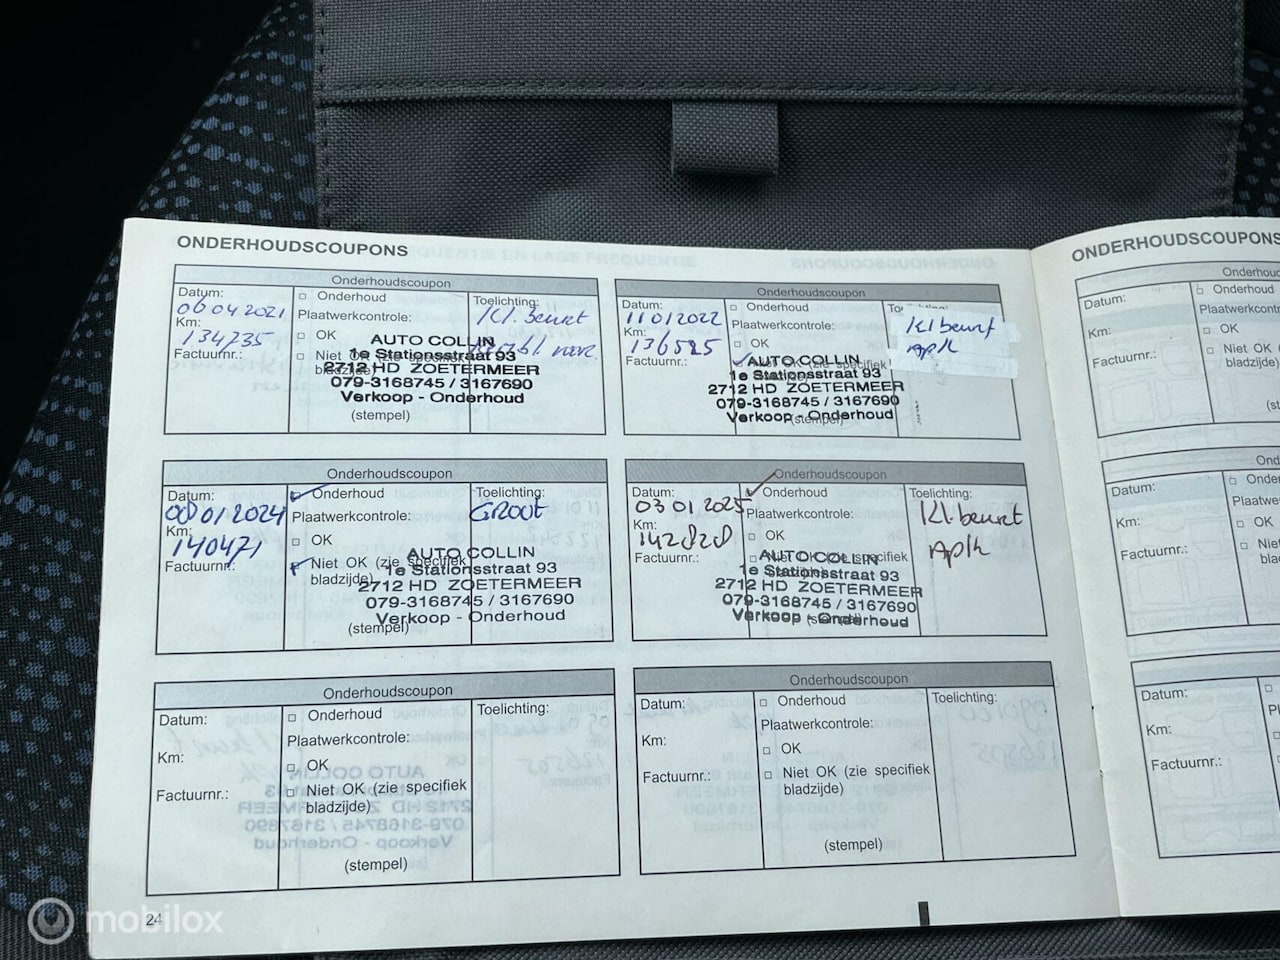 ONDERHOUDSCOUPONS
Onderhoudscoupon
Datum:
06 04 2021
Km:
134735
Factuurnr.:
Onderhoud
Plaatwerkcontrole:
OK
Niet OK (zie specifiek
bladzijde)
Toelichting:
Kl. beurt
voor
AUTO COLLIN
1e Stationsstraat 93
2712 HD ZOETERMEER
079-3168745 / 3167690
Verkoop - Onderhoud
(stempel)
Onderhoudscoupon
Datum:
11 01 2022
Km:
136525
Factuurnr.:
Onderhoud
Plaatwerkcontrole:
OK
OK (zie specifiek
Kl beurt
Apk
AUTO COLLIN
1e Stationsstraat 93
2712 HD ZOETERMEER
079-3168745 / 3167690
Verkoop - Onderhoud
(stempel)
Onderhoudscoupon
Datum:
08 01 2024
Km:
140471
Factuurnr.:
Onderhoud
Plaatwerkcontrole:
OK
Niet OK (zie specifiek
bladzijde)
Toelichting:
GROOT
AUTO COLLIN
1e Stationsstraat 93
2712 HD ZOETERMEER
079-3168745 / 3167690
Verkoop - Onderhoud
(stempel)
Onderhoudscoupon
Datum:
03 01 2025
Km:
142828
Factuurnr.:
Onderhoud
Plaatwerkcontrole:
OK
specifiek
Toelichting:
Kl. beurt
Apk
AUTO COLLIN
1e Stationsstraat 93
2712 HD ZOETERMEER
079-3168745 / 3167690
Verkoop - Onderhoud
Onderhoudscoupon
Datum:
Km:
Factuurnr.:
Onderhoud
Plaatwerkcontrole:
OK
Niet OK (zie specifiek
bladzijde)
Toelichting:
(stempel)
Onderhoudscoupon
Datum:
Km:
Factuurnr.:
Onderhoud
Plaatwerkcontrole:
OK
Niet OK (zie specifiek
bladzijde)
Toelichting:
(stempel)
24
ONDERHOUDSCOUPONS
Datum:
Km:
Factuurnr.:
Onderhoud
OK
Niet OK
bladzijde)
Datum:
Km:
Factuurnr.:
OK
Datum:
Km:
Factuurnr.:
mobilox